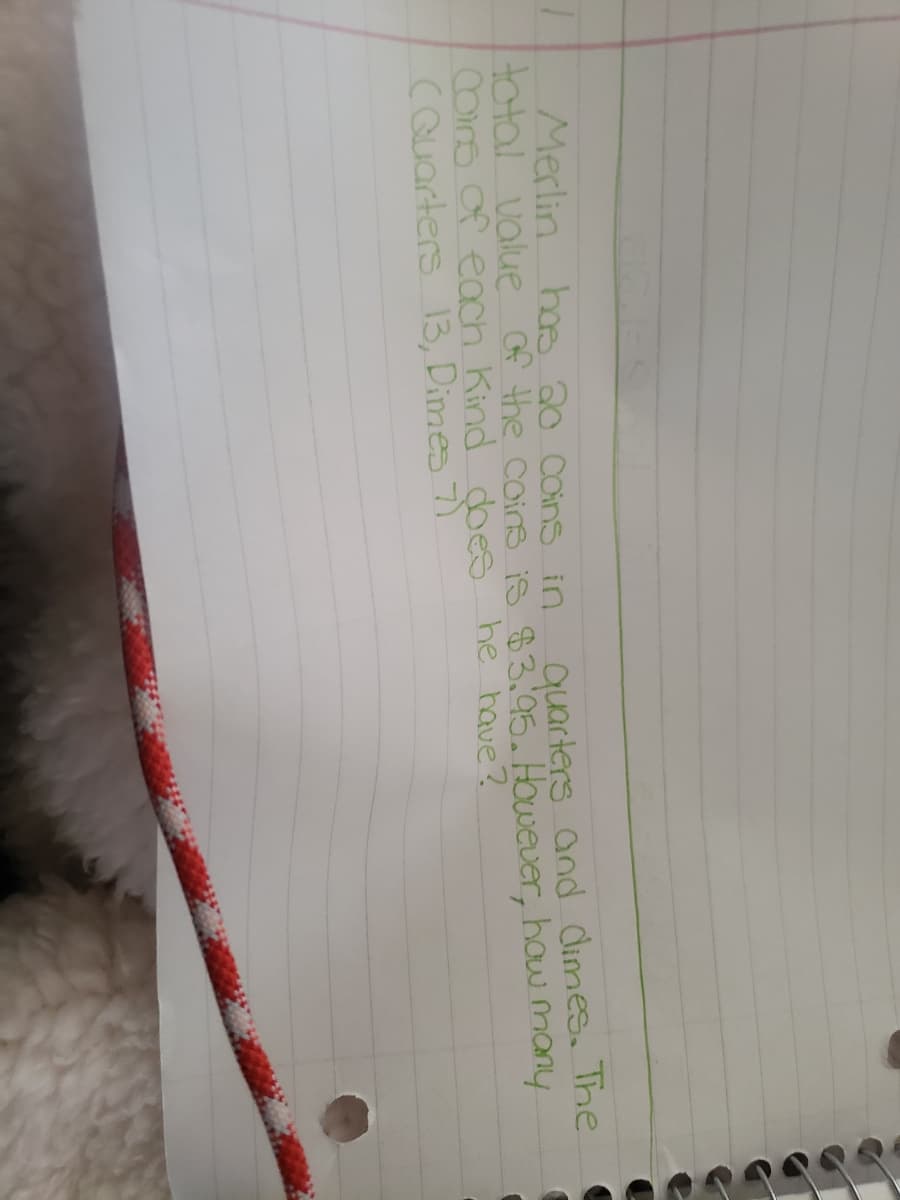 1 Merlin has 20 coins in quarters and dimes. The
total value of the coins is $3.95. However, how many
Coins of each kind does he have?
(Quarters 13, Dimes 7)